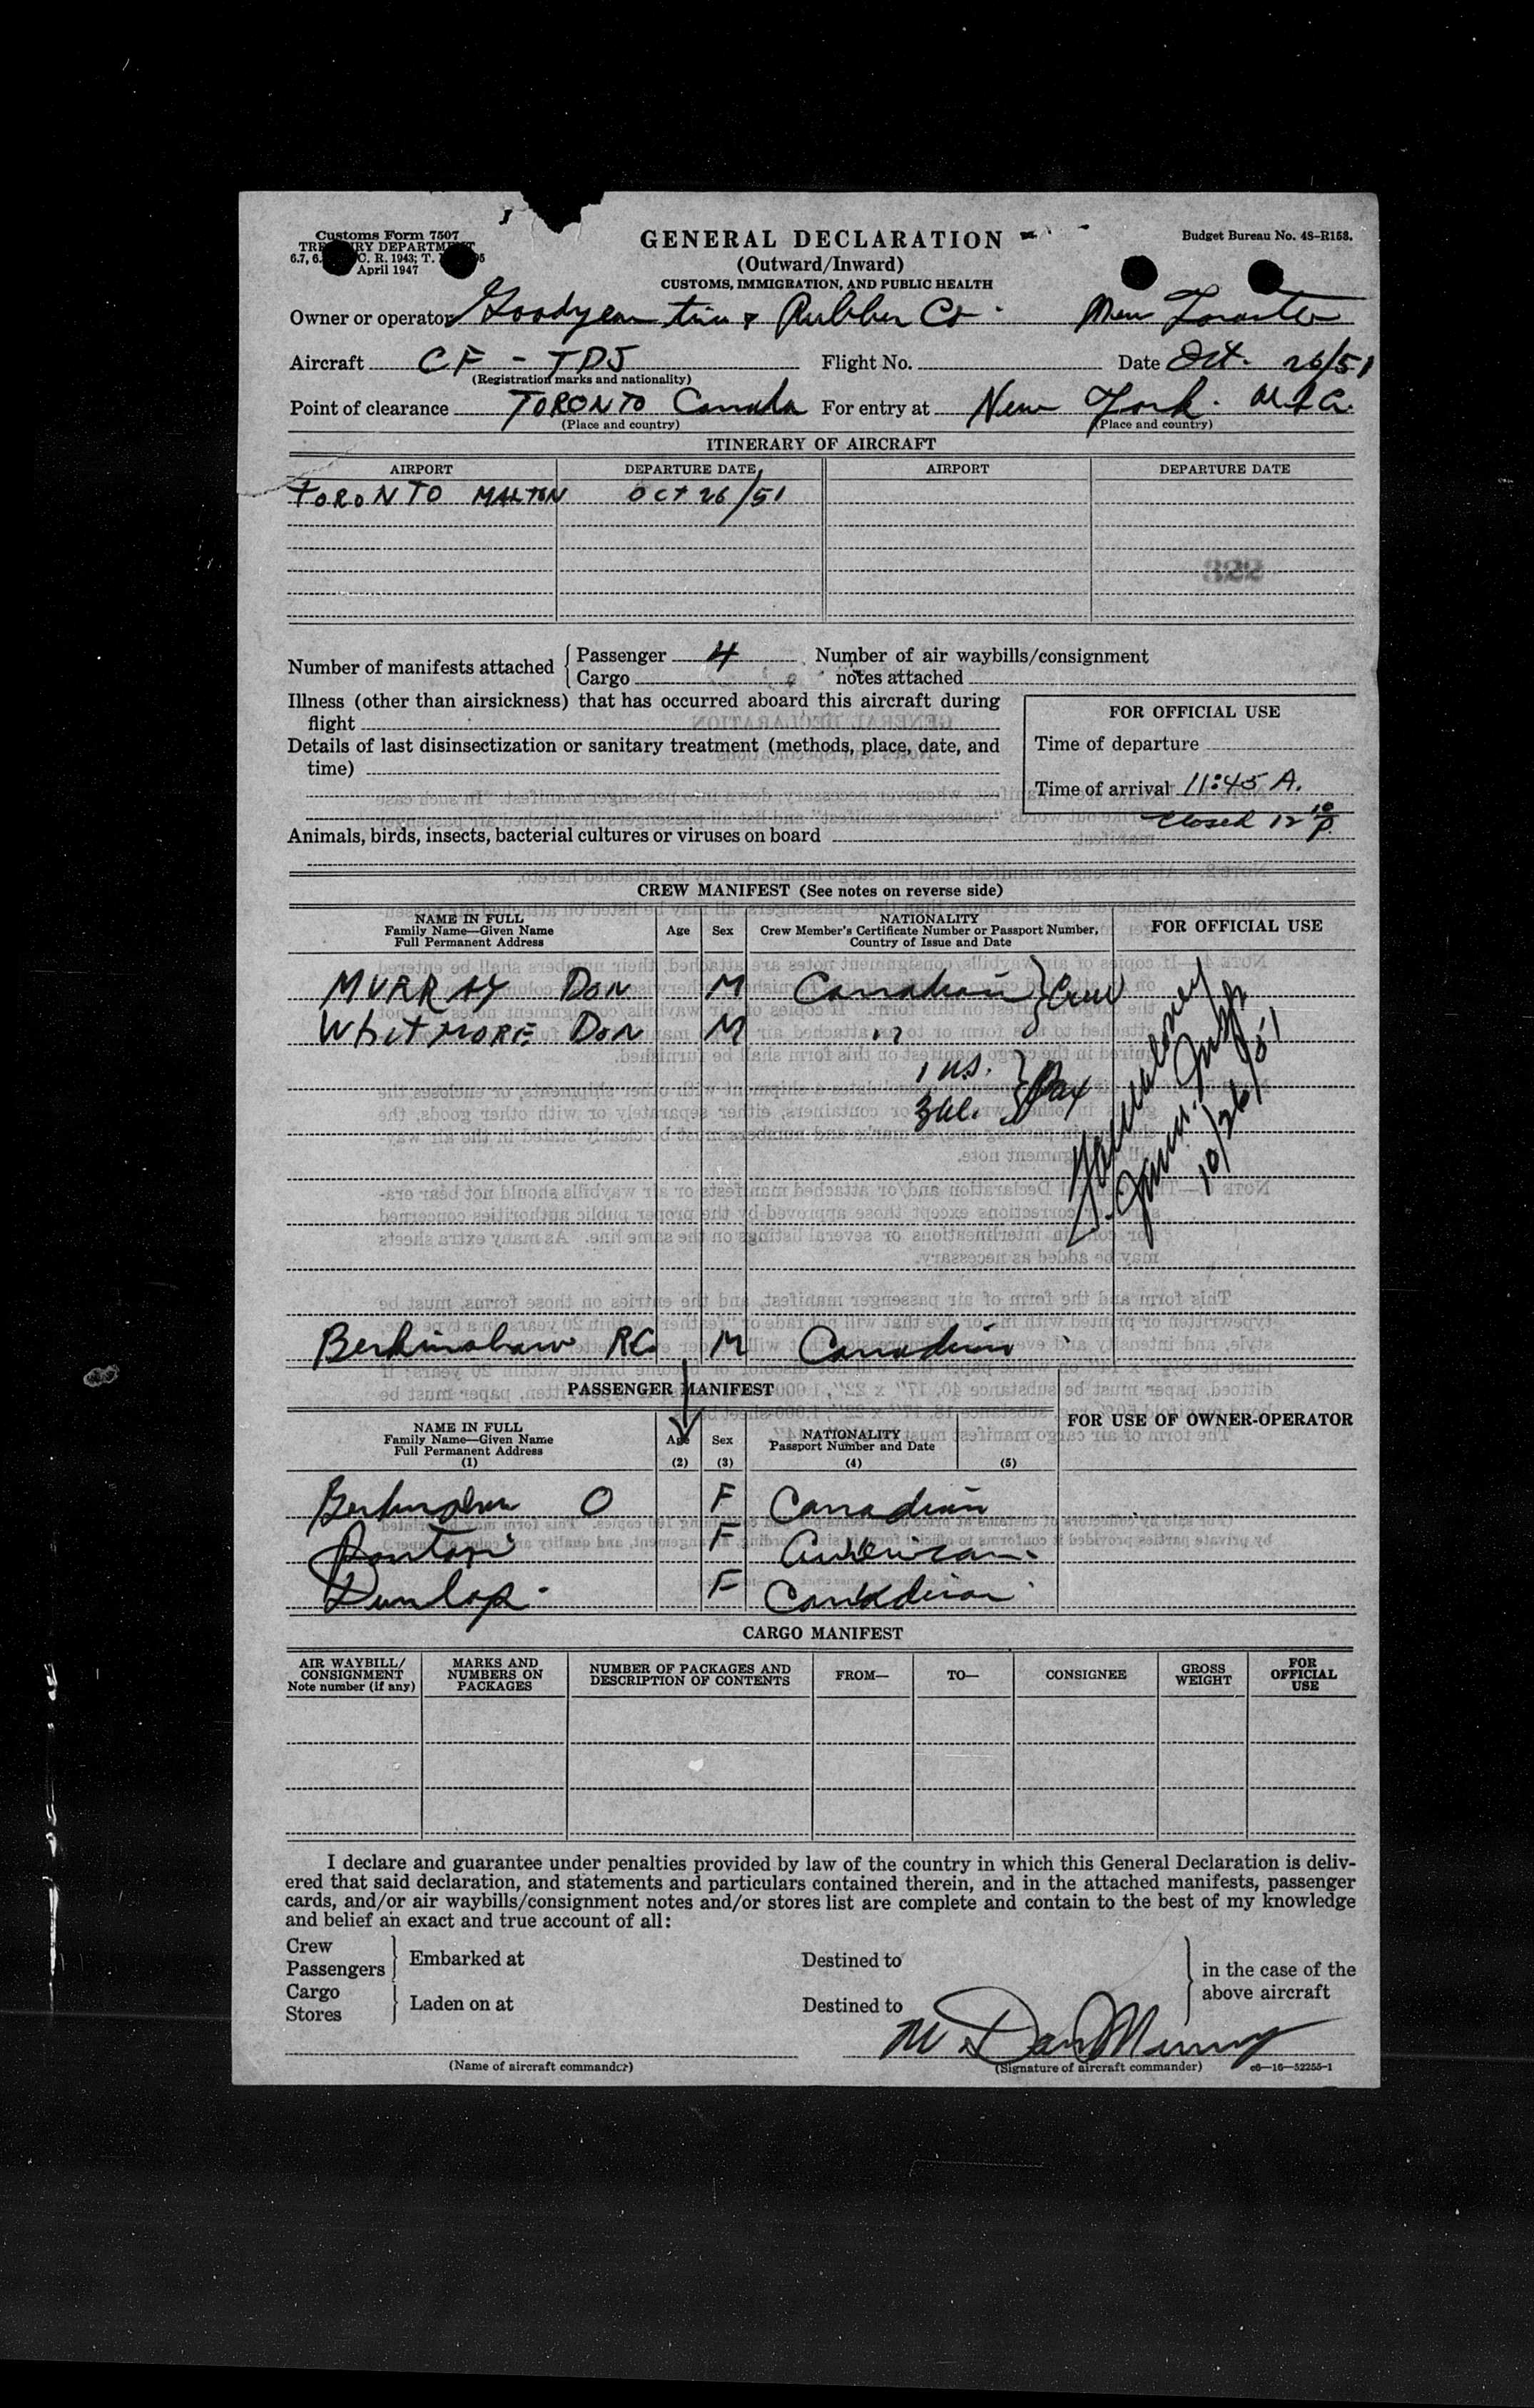 Customs Form 7507
TREASURY DEPARTMENT
C. R. 1943; T.
April 1947
GENERAL DECLARATION
(Outward/Inward)
CUSTOMS, IMMIGRATION, AND PUBLIC HEALTH
Budget Bureau No. 48-R158.
Owner or operator Goodyear tire & Rubber Co. New Toronto
Aircraft CF - TDJ Flight No. Date Oct. 26/51
(Registration marks and nationality)
Point of clearance TORONTO Canada For entry at New York. U.S.A.
(Place and country) (Place and country)
ITINERARY OF AIRCRAFT
AIRPORT DEPARTURE DATE AIRPORT DEPARTURE DATE
TORONTO MALTON OCT 26/51
322
Number of manifests attached Passenger 4 Number of air waybills/consignment
Cargo notes attached
Illness (other than airsickness) that has occurred aboard this aircraft during
flight
Details of last disinsectization or sanitary treatment (methods, place, date, and
time)
FOR OFFICIAL USE
Time of departure
Time of arrival 11:45 A.
closed 12 10 P.
Animals, birds, insects, bacterial cultures or viruses on board
CREW MANIFEST (See notes on reverse side)
NAME IN FULL
Family Name—Given Name
Full Permanent Address
Age
Sex
NATIONALITY
Crew Member's Certificate Number or Passport Number,
Country of Issue and Date
FOR OFFICIAL USE
MURRAY DON M Canadian Crew
WHITMORE DON M "
1 U.S. Pax
3
10/26/51
Berkinshaw RC. M Canadian
PASSENGER MANIFEST
NAME IN FULL
Family Name—Given Name
Full Permanent Address
(1)
Age
(2)
Sex
(3)
NATIONALITY
Passport Number and Date
(4) (5)
FOR USE OF OWNER-OPERATOR
Berkinshaw O F Canadian
F American.
Dunlop. F Canadian
CARGO MANIFEST
AIR WAYBILL/
CONSIGNMENT
Note number (if any)
MARKS AND
NUMBERS ON
PACKAGES
NUMBER OF PACKAGES AND
DESCRIPTION OF CONTENTS
FROM—
TO—
CONSIGNEE
GROSS
WEIGHT
FOR
OFFICIAL
USE
I declare and guarantee under penalties provided by law of the country in which this General Declaration is deliv-
ered that said declaration, and statements and particulars contained therein, and in the attached manifests, passenger
cards, and/or air waybills/consignment notes and/or stores list are complete and contain to the best of my knowledge
and belief an exact and true account of all:
Crew
Passengers Embarked at Destined to in the case of the
Cargo above aircraft
Stores Laden on at Destined to
M. Don Murray
(Name of aircraft commander) (Signature of aircraft commander) c6—16—52255-1